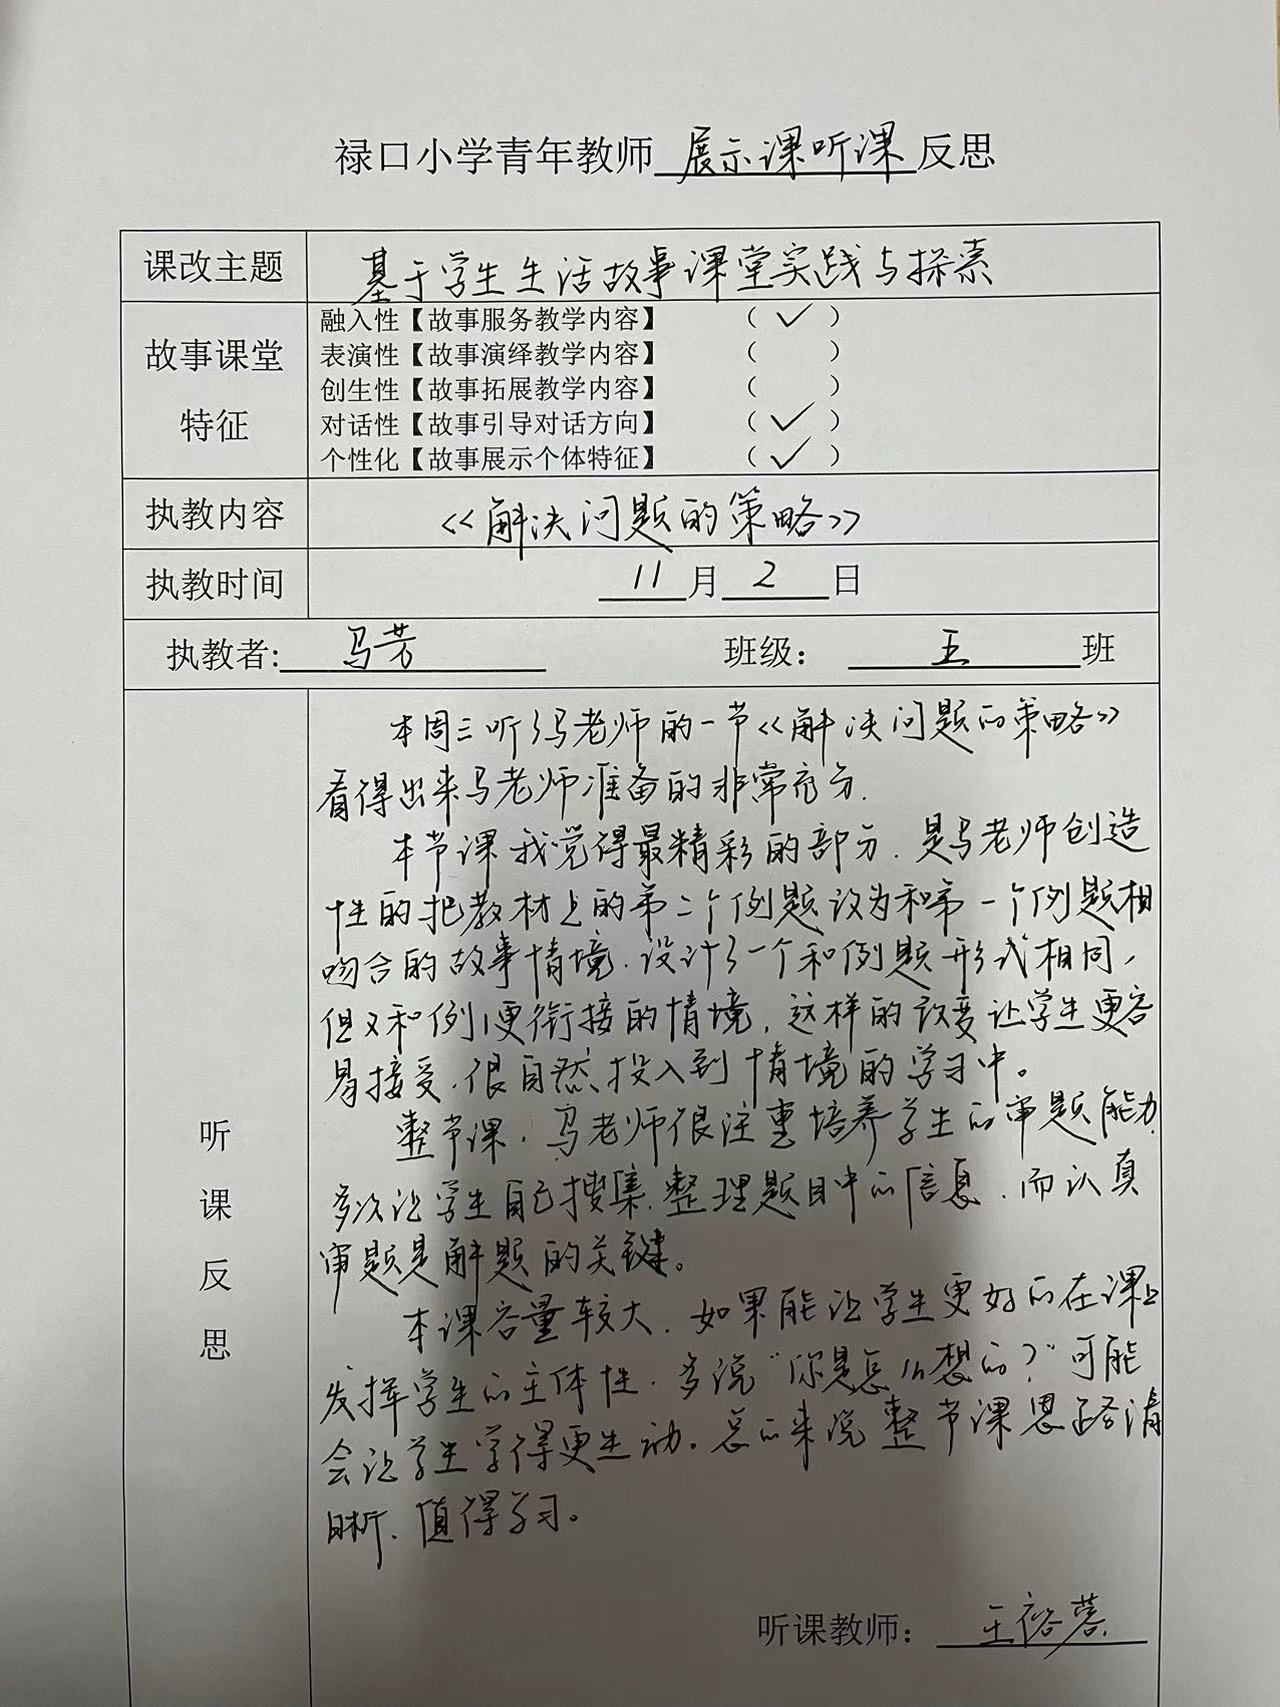 禄口小学青年教师 展示课听课 反思
课改主题 基于学生生活故事课堂实践与探索
故事课堂
特征
融入性【故事服务教学内容】 （ ✓ ）
表演性【故事演绎教学内容】 （ ）
创生性【故事拓展教学内容】 （ ）
对话性【故事引导对话方向】 （ ✓ ）
个性化【故事展示个体特征】 （ ✓ ）
执教内容 《解决问题的策略》
执教时间 11 月 2 日
执教者: 马芳 班级： 五 班
听
课
反
思
本周三听了马老师的一节《解决问题的策略》
看得出来马老师准备的非常充分.
本节课我觉得最精彩的部分.是马老师创造
性的把教材上的第二个例题设为和第一个例题相
吻合的故事情境.设计了一个和例题形式相同,
但又和例1更衔接的情境,这样的改变让学生更容
易接受.很自然投入到情境的学习中。
整节课,马老师很注重培养学生的审题能力.
多次让学生自己搜集.整理题目中的信息.而认真
审题是解题的关键。
本课容量较大.如果能让学生更好的在课上
发挥学生的主体性.多说“你是怎么想的?”可能
会让学生学得更生动.总的来说整节课思路清
晰.值得学习。
听课教师： 王裕蓉